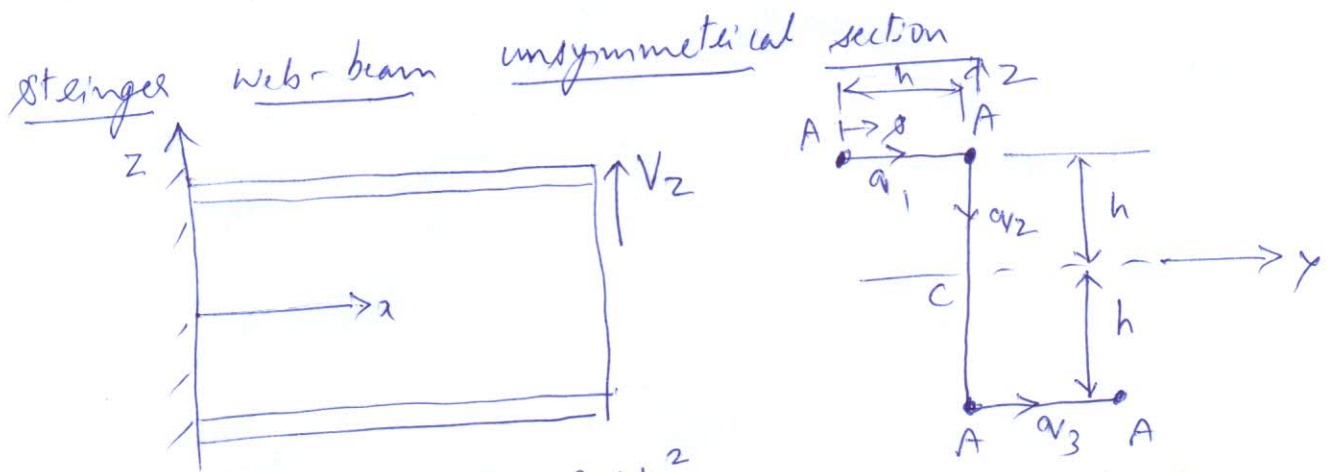 Stringer web-beam unsymmetrical section
h
Z
A
s
A
Z
V2
q1
h
q2
y
C
x
h
A
q3
A
2